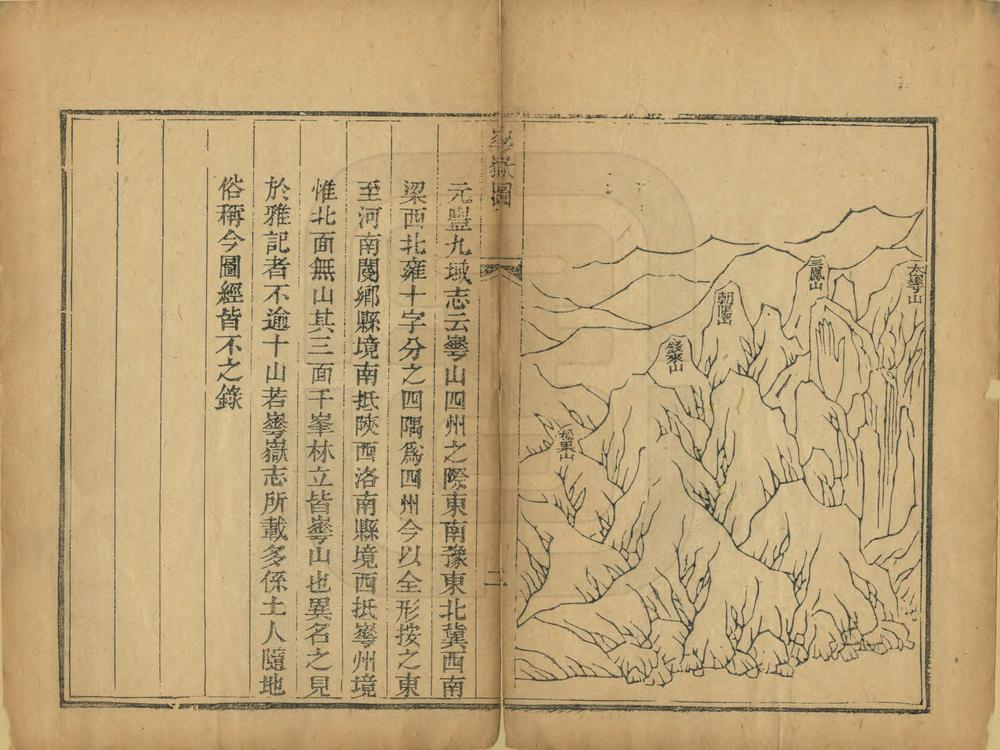 太崋山
三鳳山
朝陽山
松果山
崋嶽圖
二
元豐九域志云崋山四州之際東南豫東北冀西南
梁西北雍十字分之四隅爲四州今以全形按之東
至河南閿鄉縣境南抵陝西洛南縣境西抵崋州境
惟北面無山其三面千峯林立皆崋山也異名之見
於雅記者不逾十山若崋嶽志所載多係土人隨地
俗稱今圖經皆不之錄